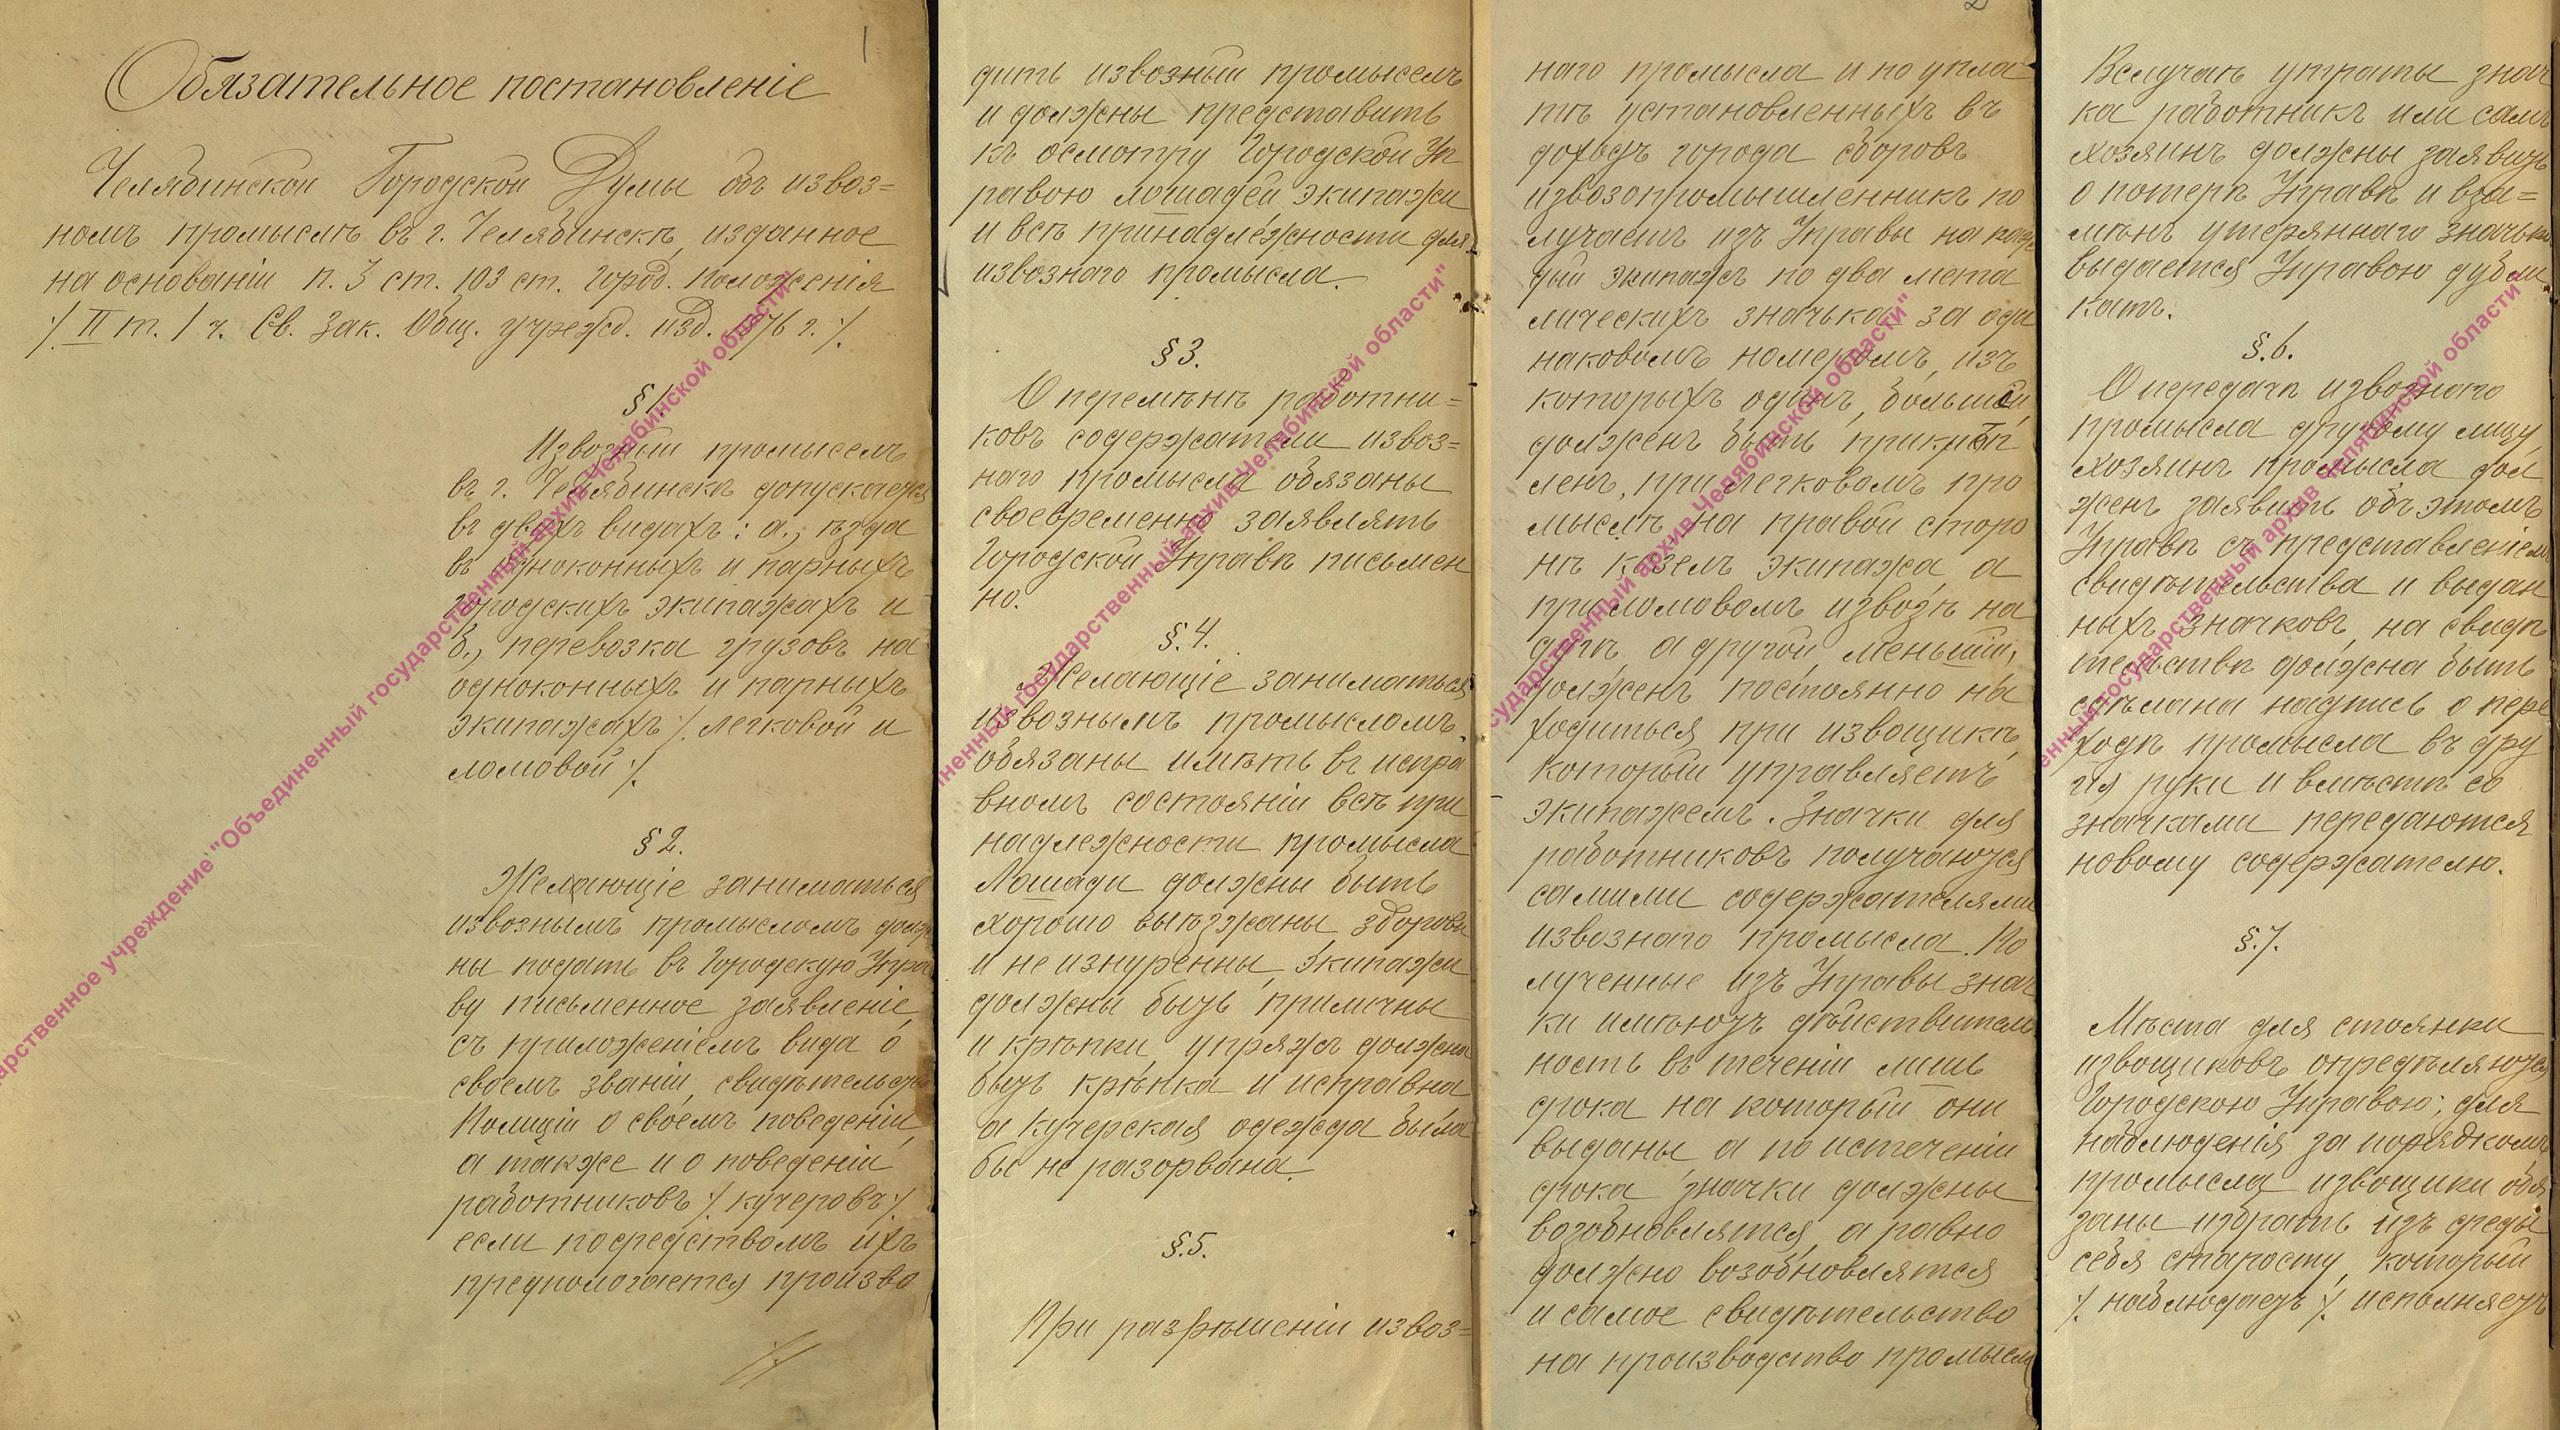 1
Обязательное постановленіе
Челябинской Городской Думы объ извоз=
номъ промыслѣ въ г. Челябинскѣ, изданное
на основаніи п. 3 ст. 103 ст. Город. Положенія
/. II т. 1 ч. Св. Зак. Общ. учрежд. изд. 1876 г. /.
§ 1.
Извозный промыселъ
въ г. Челябинскѣ допускается
въ двухъ видахъ: а., ѣзда
въ одноконныхъ и парныхъ
городскихъ экипажахъ и
б., перевозка грузовъ на
одноконныхъ и парныхъ
экипажахъ /. легковой и
ломовой /.
§ 2.
Желающіе заниматься
извознымъ промысломъ долж
ны подать въ Городскую Упра
ву письменное заявленіе,
съ приложеніемъ вида о
своемъ званіи, свидѣтельство
Полиціи о своемъ поведеніи,
а также и о поведеніи
работниковъ /. кучеровъ /.
если посредствомъ ихъ
предпологается произво
дить извозный промыселъ
и должны представить
къ осмотру Городской Уп
равою лошадей, экипажи
и всѣ принадлежности для
извознаго промысла.
§ 3.
О перемѣнѣ работни=
ковъ содержатели извоз=
наго промысла обязаны
своевременно заявлять
Городской Управѣ письмен
но.
§. 4.
Желающіе заниматься
извознымъ промысломъ,
обязаны имѣть въ испра
вномъ состояніи всѣ при
надлежности промысла
Лошади должны быть
хорошо выѣзжаны, здоровы
и не изнуренны, экипажи
должны быть приличны
и крѣпки, упряжь должна
быть крѣпка и исправна
а кучерская одежда была
бы не разорвана.
§. 5.
При разрѣшеніи извоз=
2
наго промысла и по упла
тѣ установленныхъ въ
доходъ города сборовъ
извозопромышленникъ по
лучаетъ изъ Управы на каж
дый экипажъ по два мета
лическихъ значька за оди
наковымъ номеромъ, изъ
которыхъ одинъ, большой,
долженъ быть прикрѣп
ленъ, при легковомъ про
мыслѣ на правой сторо
нѣ козелъ экипажа, а
при ломовомъ извозѣ на
дугѣ, а другой, меньшій,
долженъ постоянно на
ходиться при извощикѣ,
который управляетъ
экипажемъ. Значки для
работниковъ получаются
самими содержателями
извознаго промысла. По
лученные изъ Управы знач
ки имѣютъ дѣйствитель
ность въ теченіи лишь
срока на который они
выданы, а по истеченіи
срока значки должны
возобновлятся, а равно
должно возобновлятся
и самое свидѣтельство
на производство промысла
Вслучаѣ утраты знач
ка работникъ или самъ
хозяинъ должны заявить
о потерѣ Управѣ и вза=
мѣнъ утеряннаго значька
выдается Управою дубли
катъ.
§. 6.
О передачѣ извознаго
промысла другому лицу,
хозяинъ промысла дол
женъ заявить объ этомъ
Управѣ съ представленіемъ
свидѣтельства и выдан
ныхъ значковъ, на свидѣ
тельствѣ должна быть
сдѣлана надпись о пере
ходѣ промысла въ дру
гія руки и вмѣстѣ со
значками передаются
новому содержателю.
§. 7.
Мѣста для стоянки
извощиковъ опредѣляются
Городскою Управою; для
наблюденія за порядкомъ
промысла извощики обя
заны избрать изъ среды
себя старосту, который
/. наблюдаетъ /. исполняетъ
государственное учреждение "Объединенный государственный архив Челябинской области"